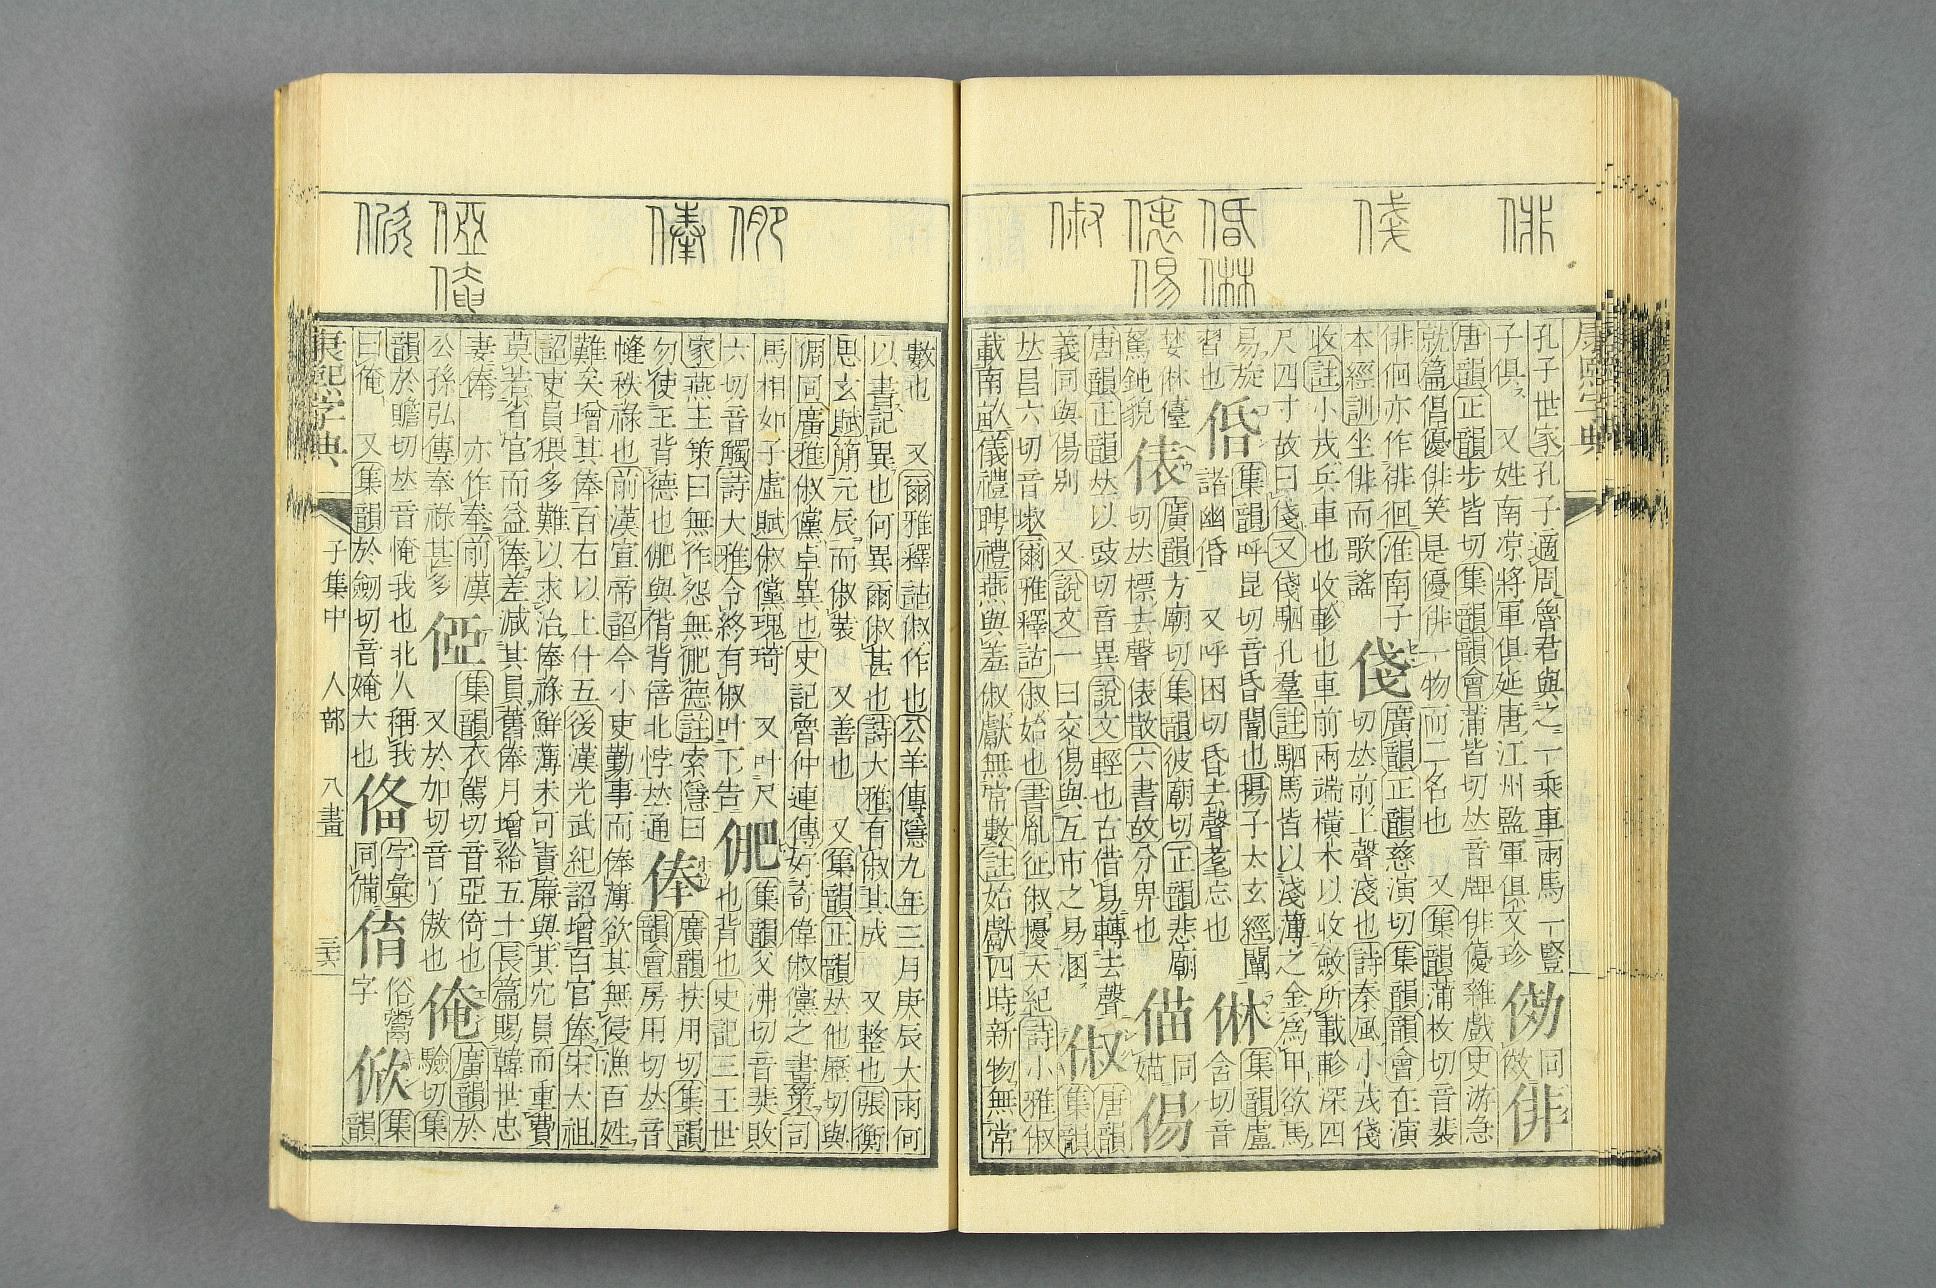 康熙字典
俳
俴
孔子世家孔子適周魯君與之一乘車兩馬一豎
子俱 又姓南凉將軍俱延唐江州監軍俱文珍
俳
唐韻正韻步皆切集韻韻會蒲皆切𠀤音牌俳優雜戲史游急
就篇倡優俳笑是優俳一物而二名也 又集韻蒲枚切音裴
俳佪亦作徘徊淮南子
本經訓坐俳而歌謠
俴
廣韻正韻慈演切集韻韻會在演
切𠀤前上聲淺也詩秦風小戎俴
收註小戎兵車也收軫也車前兩端橫木以收斂所載軫深四
尺四寸故曰俴又俴駟孔羣註駟馬皆以淺薄之金爲甲欲馬
易旋
習也
集韻呼昆切音昏闇也揚子太玄經闇
諸幽 又呼困切昏去聲耄忘也
㑣
集韻盧
含切音
婪㑣儓
駑鈍貌
俵
廣韻方廟切集韻彼廟切正韻悲廟
切𠀤標去聲俵散六書故分畀也
同
㑤
唐韻正韻𠀤以豉切音異說文輕也古借易轉去聲
義同與傷別 又說文一曰交㑥與互市之易溷
俶
唐韻
集韻
𠀤昌六切音埱爾雅釋詁俶始也書胤征俶擾天紀詩小雅俶
載南畝儀禮聘禮燕與羞俶獻無常數註始獻四時新物無常
俸
數也 又爾雅釋詁俶作也公羊傳隱九年三月庚辰大雨何
以書記異也何異爾俶甚也詩大雅有俶其成 又整也張衡
思玄賦簡元辰而俶裝 又善也 又集韻正韻𠀤他歷切與
倜同廣雅俶儻卓異也史記魯仲連傳好奇偉俶儻之畫策司
馬相如子虛賦俶儻瑰琦 又叶尺
六切音觸詩大雅令終有俶叶下告
俷
集韻父沸切音㹃敗
也背也史記三王世
家燕王策曰無作怨無俷德註索隱曰
勿使王背德也俷與偝背倍北悖𠀤通
俸
廣韻扶用切集韻
韻會房用切𠀤音
幒秩祿也前漢宣帝詔令小吏勤事而俸薄欲其無侵漁百姓
難矣增其俸百石以上什五後漢光武紀詔增百官俸宋太祖
詔吏員猥多難以求治俸祿鮮薄未可責廉與其冗員而重費
莫若省官而益俸差減其員舊俸月增給五十長篇賜韓世忠
妻俸 亦作奉前漢
公孫弘傳奉祿甚多
俹
集韻衣駕切音亞倚也
又於加切音丫傲也
俺
廣韻於
驗切集
韻於贍切𠀤音愴我也北人稱我
曰俺 又集韻於劒切音媕大也
俻
字彙
同備
俏
俗
字
集
韻
康熙字典
子集中 人部 八畫
三六